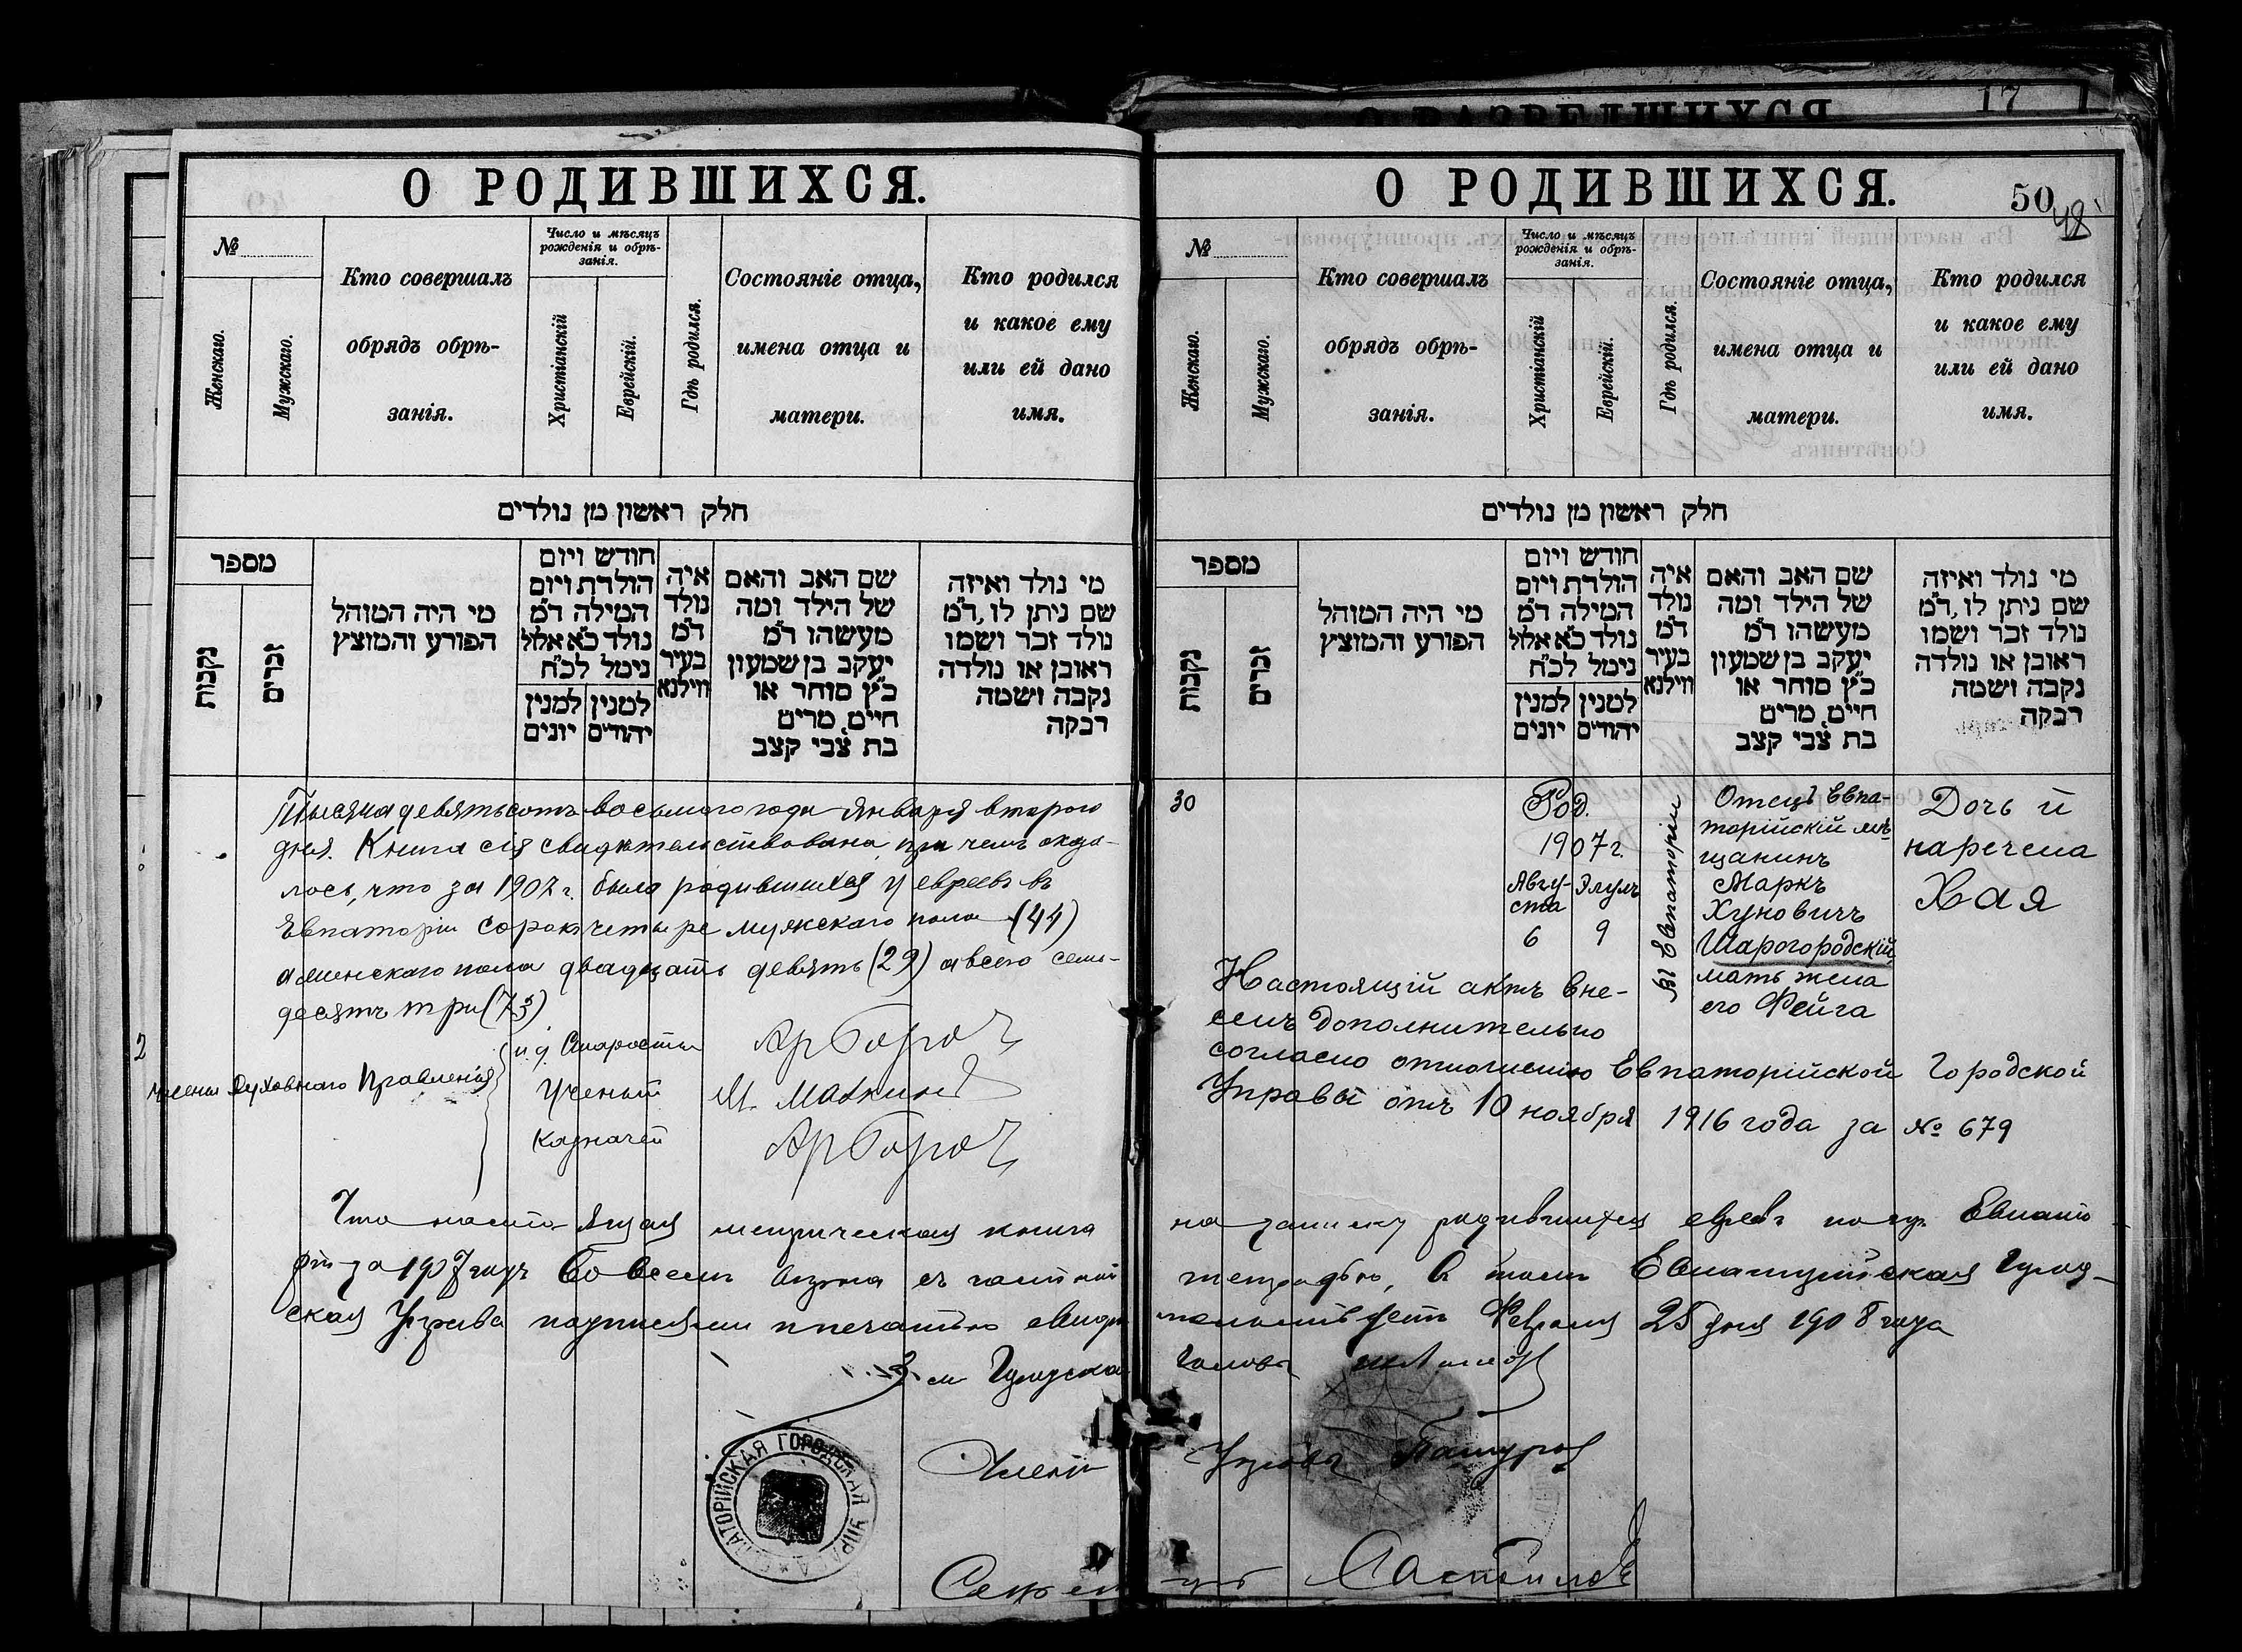 О РОДИВШИХСЯ.
№
Женскаго.
Мужскаго.
Кто совершалъ
обрядъ обрѣ-
занія.
Число и мѣсяцъ
рожденія и обрѣ-
занія.
Христіанскій
Еврейскій.
Гдѣ родился.
Состояніе отца,
имена отца и
матери.
Кто родился
и какое ему
или ей дано
имя.
חלק ראשון מן נולדים
מספר
נקבות
זכרים
מי היה המוהל
הפורע והמוצץ
חודש ויום
הולדת ויום
המילה ד"מ
נולד כ"א אלול
נימל לכ"ח
למנין יהודים
למנין יונים
איה
נולד
ד"מ
בעיר
ווילנא
שם האב והאם
של הילד ומה
מעשהו ד"מ
יעקב בן שמעון
כ"ץ סוחר או
חיים, מרים
בת צבי קצב
מי נולד ואיזה
שם ניתן לו, ד"מ
נולד זכר ושמו
ראובן או נולדה
נקבה ושמה
רבקה
Тысяча девятьсотъ восьмого года Января второго
дня. Книга сія свидѣтельствована, при чемъ оказа-
лось, что за 1907 г. было родившихся у евреевъ въ
Евпаторіи сорокъ четыре мужскаго пола (44)
а женскаго пола двадцать девять (29) а всего семь-
десятъ три (73)
2
Члены Духовнаго Правленія
и. д. Старосты
Ученый М.
Казначей
О РОДИВШИХСЯ.
50
48
17
№
Женскаго.
Мужскаго.
Кто совершалъ
обрядъ обрѣ-
занія.
Число и мѣсяцъ
рожденія и обрѣ-
занія.
Христіанскій
Еврейскій.
Гдѣ родился.
Состояніе отца,
имена отца и
матери.
Кто родился
и какое ему
или ей дано
имя.
חלק ראשון מן נולדים
מספר
נקבות
זכרים
מי היה המוהל
הפורע והמוצץ
חודש ויום
הולדת ויום
המילה ד"מ
נולד כ"א אלול
נימל לכ"ח
למנין יהודים
למנין יונים
איה
נולד
ד"מ
בעיר
ווילנא
שם האב והאם
של הילד ומה
מעשהו ד"מ
יעקב בן שמעון
כ"ץ סוחר או
חיים, מרים
בת צבי קצב
מי נולד ואיזה
שם ניתן לו, ד"מ
נולד זכר ושמו
ראובן או נולדה
נקבה ושמה
רבקה
30
Род.
1907 г.
Авгу-
ста
6
Элулъ
9
въ Евпаторіи
Отецъ Евпа-
торійскій мѣ-
щанинъ
Маркъ
Хуновичъ
Шарогородскій,
мать жена
его Фейга
Дочь й
наречена
Хая
Настоящій актъ вне-
сенъ дополнительно
согласно отношенію Евпаторійской Городской
Управы отъ 10 ноября 1916 года за № 679
Что настоящая метрическая книга на записку родившихся евреевъ по гор. Евпато-
ріи за 1907 годъ во всемъ вѣрна съ частной тетрадью, въ томъ Евпаторійская Город-
ская Управа подписями и печатью свидѣтельствуетъ Февраля 25 дня 1908 года
Городской Головы
Членъ Управы
Секретарь
ЕВПАТОРІЙСКАЯ ГОРОДСКАЯ УПРАВА